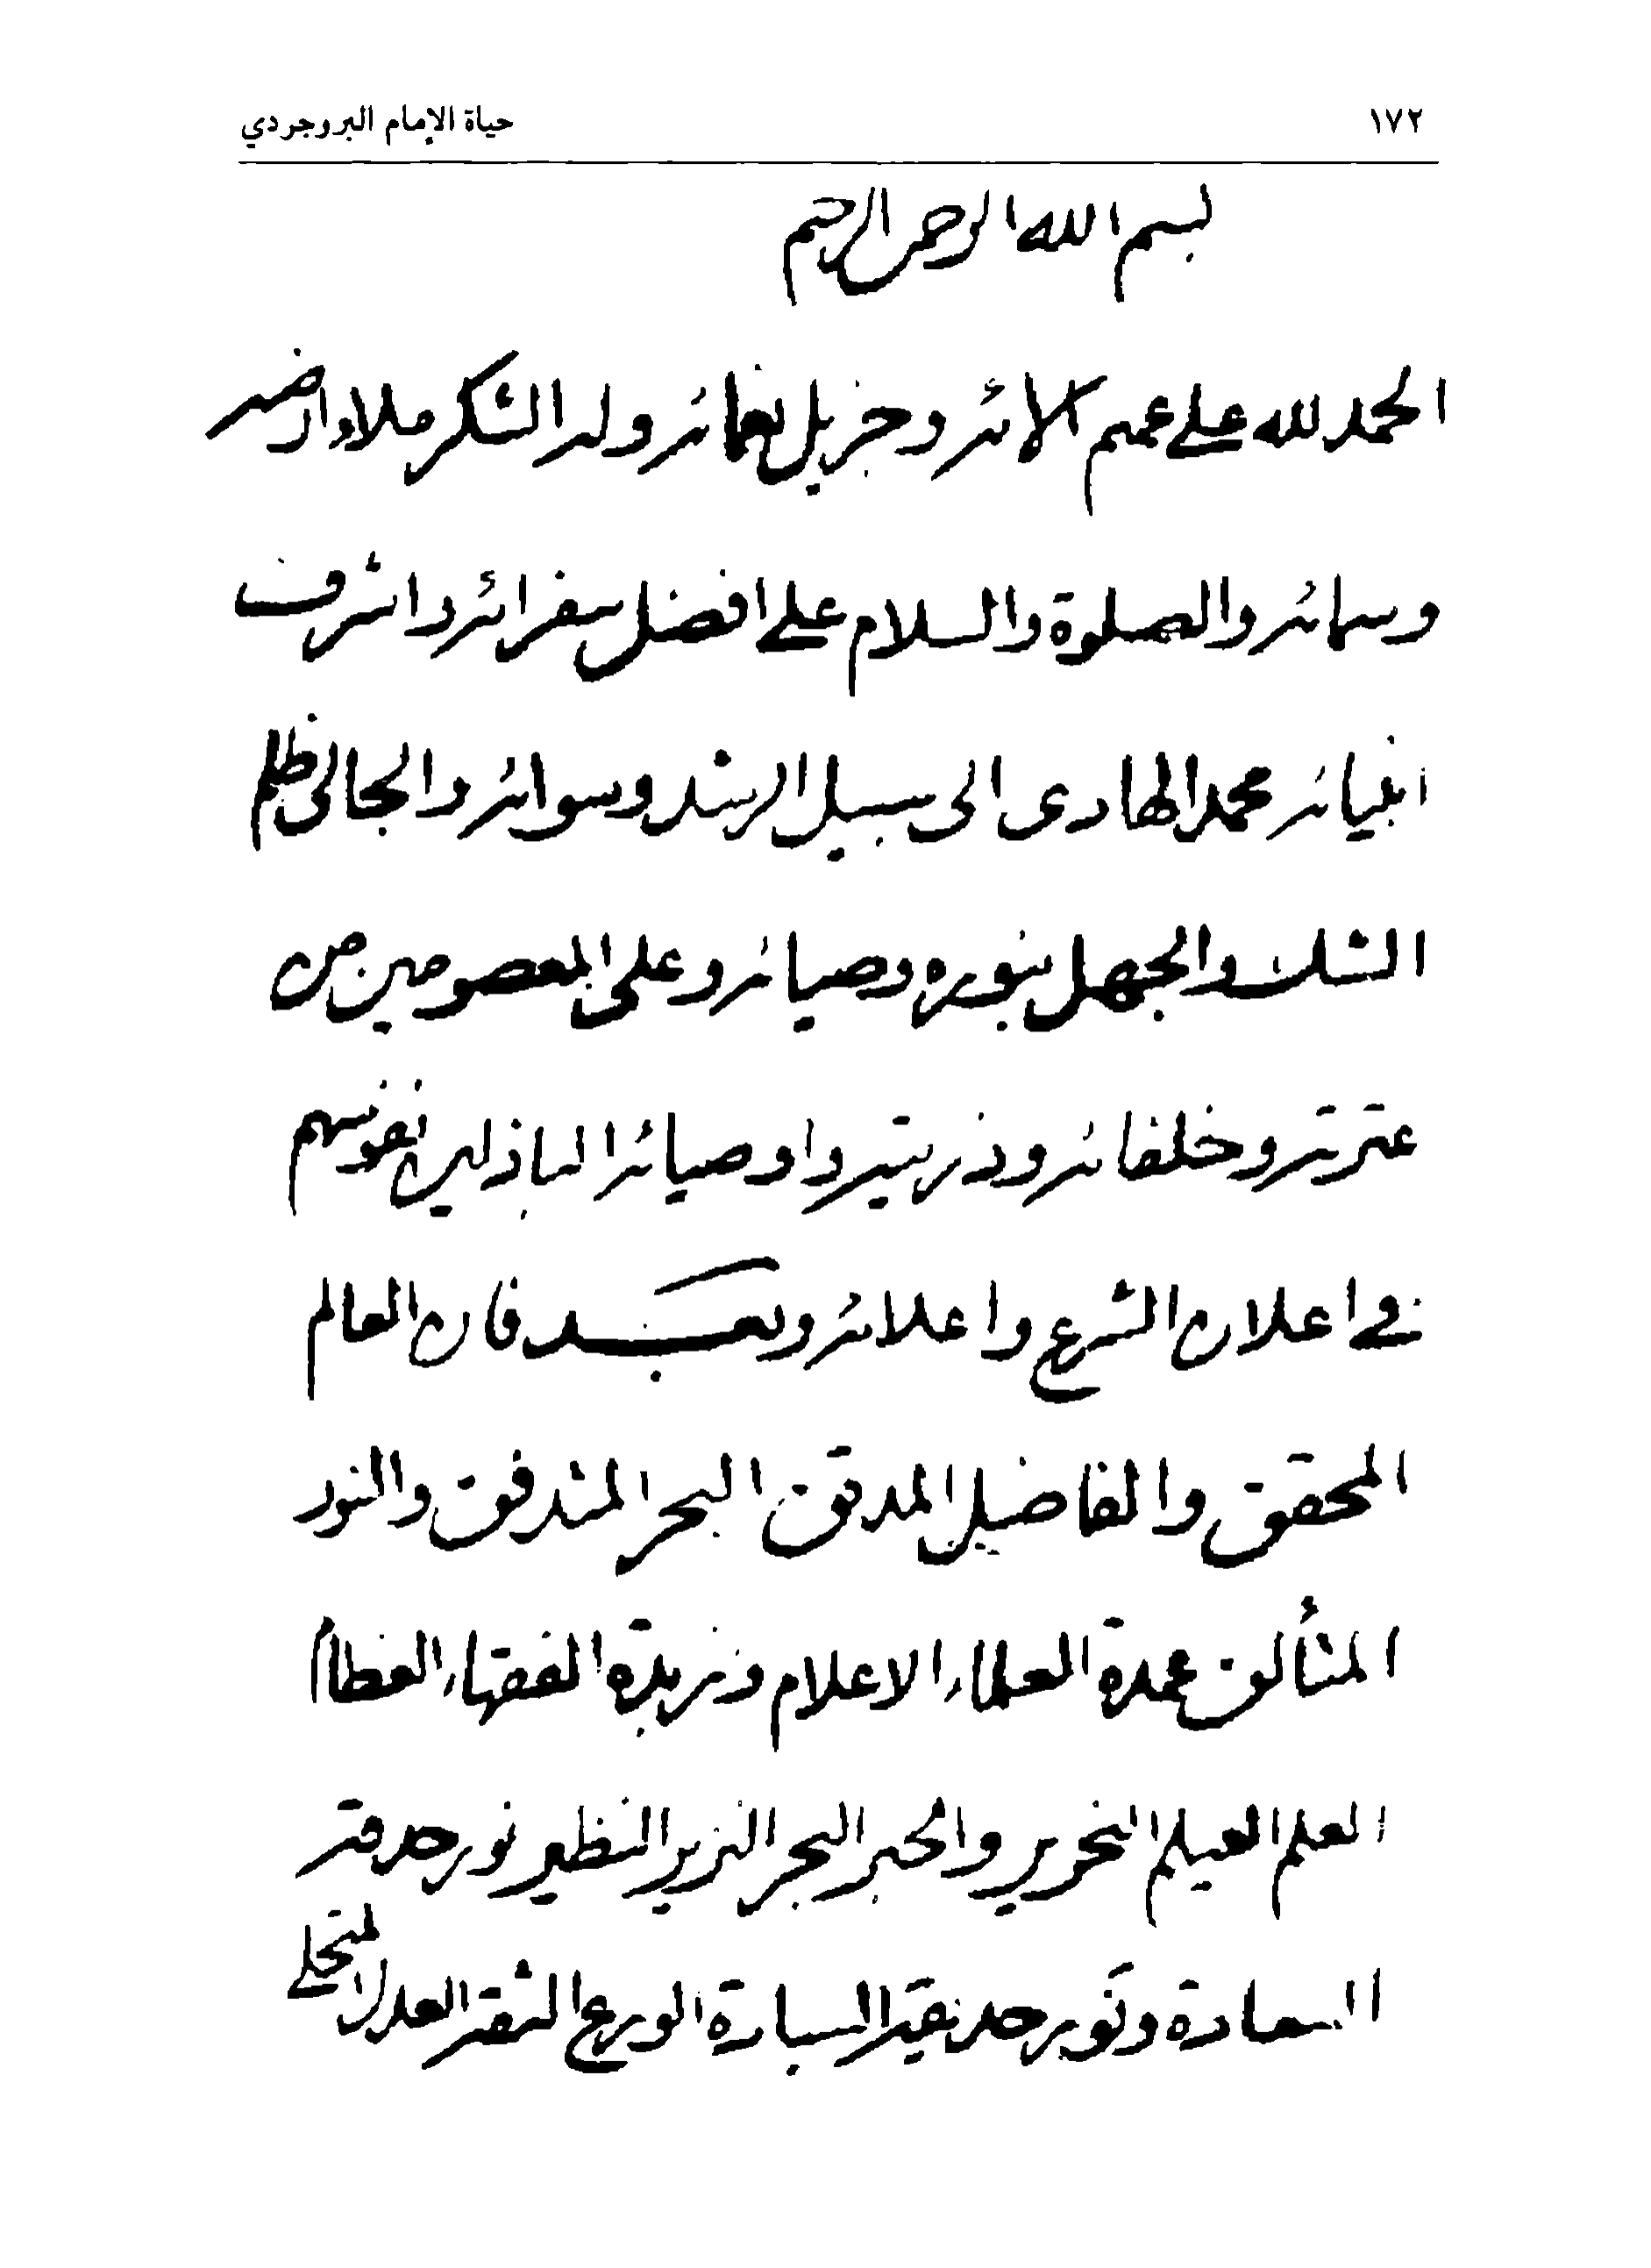 ١٧٢
حياة الإمام البروجردي
بسم الله الرحمن الرحيم
الحمد لله على عميم الائه وجزيل نعمائه وله الشكر ملاء ارضه
وسمائه والصلوة والسلام على افضل سفرائه واشرف
انبيائه محمد الهادى الى سبيل الرشد وسوائه والجالى ظلم
الشك والجهل بنوره وضيائه وعلى المعصومين من
عترته وخلفائه وذريته واوصيائه الباذلين نفوسهم
فى اعلان الشرع واعلائه وبعد فان العالم
المحقق والفاضل المدقق البحر المتدفق والنور
المتألق عمدة العلماء الاعلام وزبدة الفقهاء العظام
العلم العيلم النحرير والحبر البحر النزير النظير نور حدقة
السعادة ونور حديقة السيادة الورع الثقة العدل المتحلى